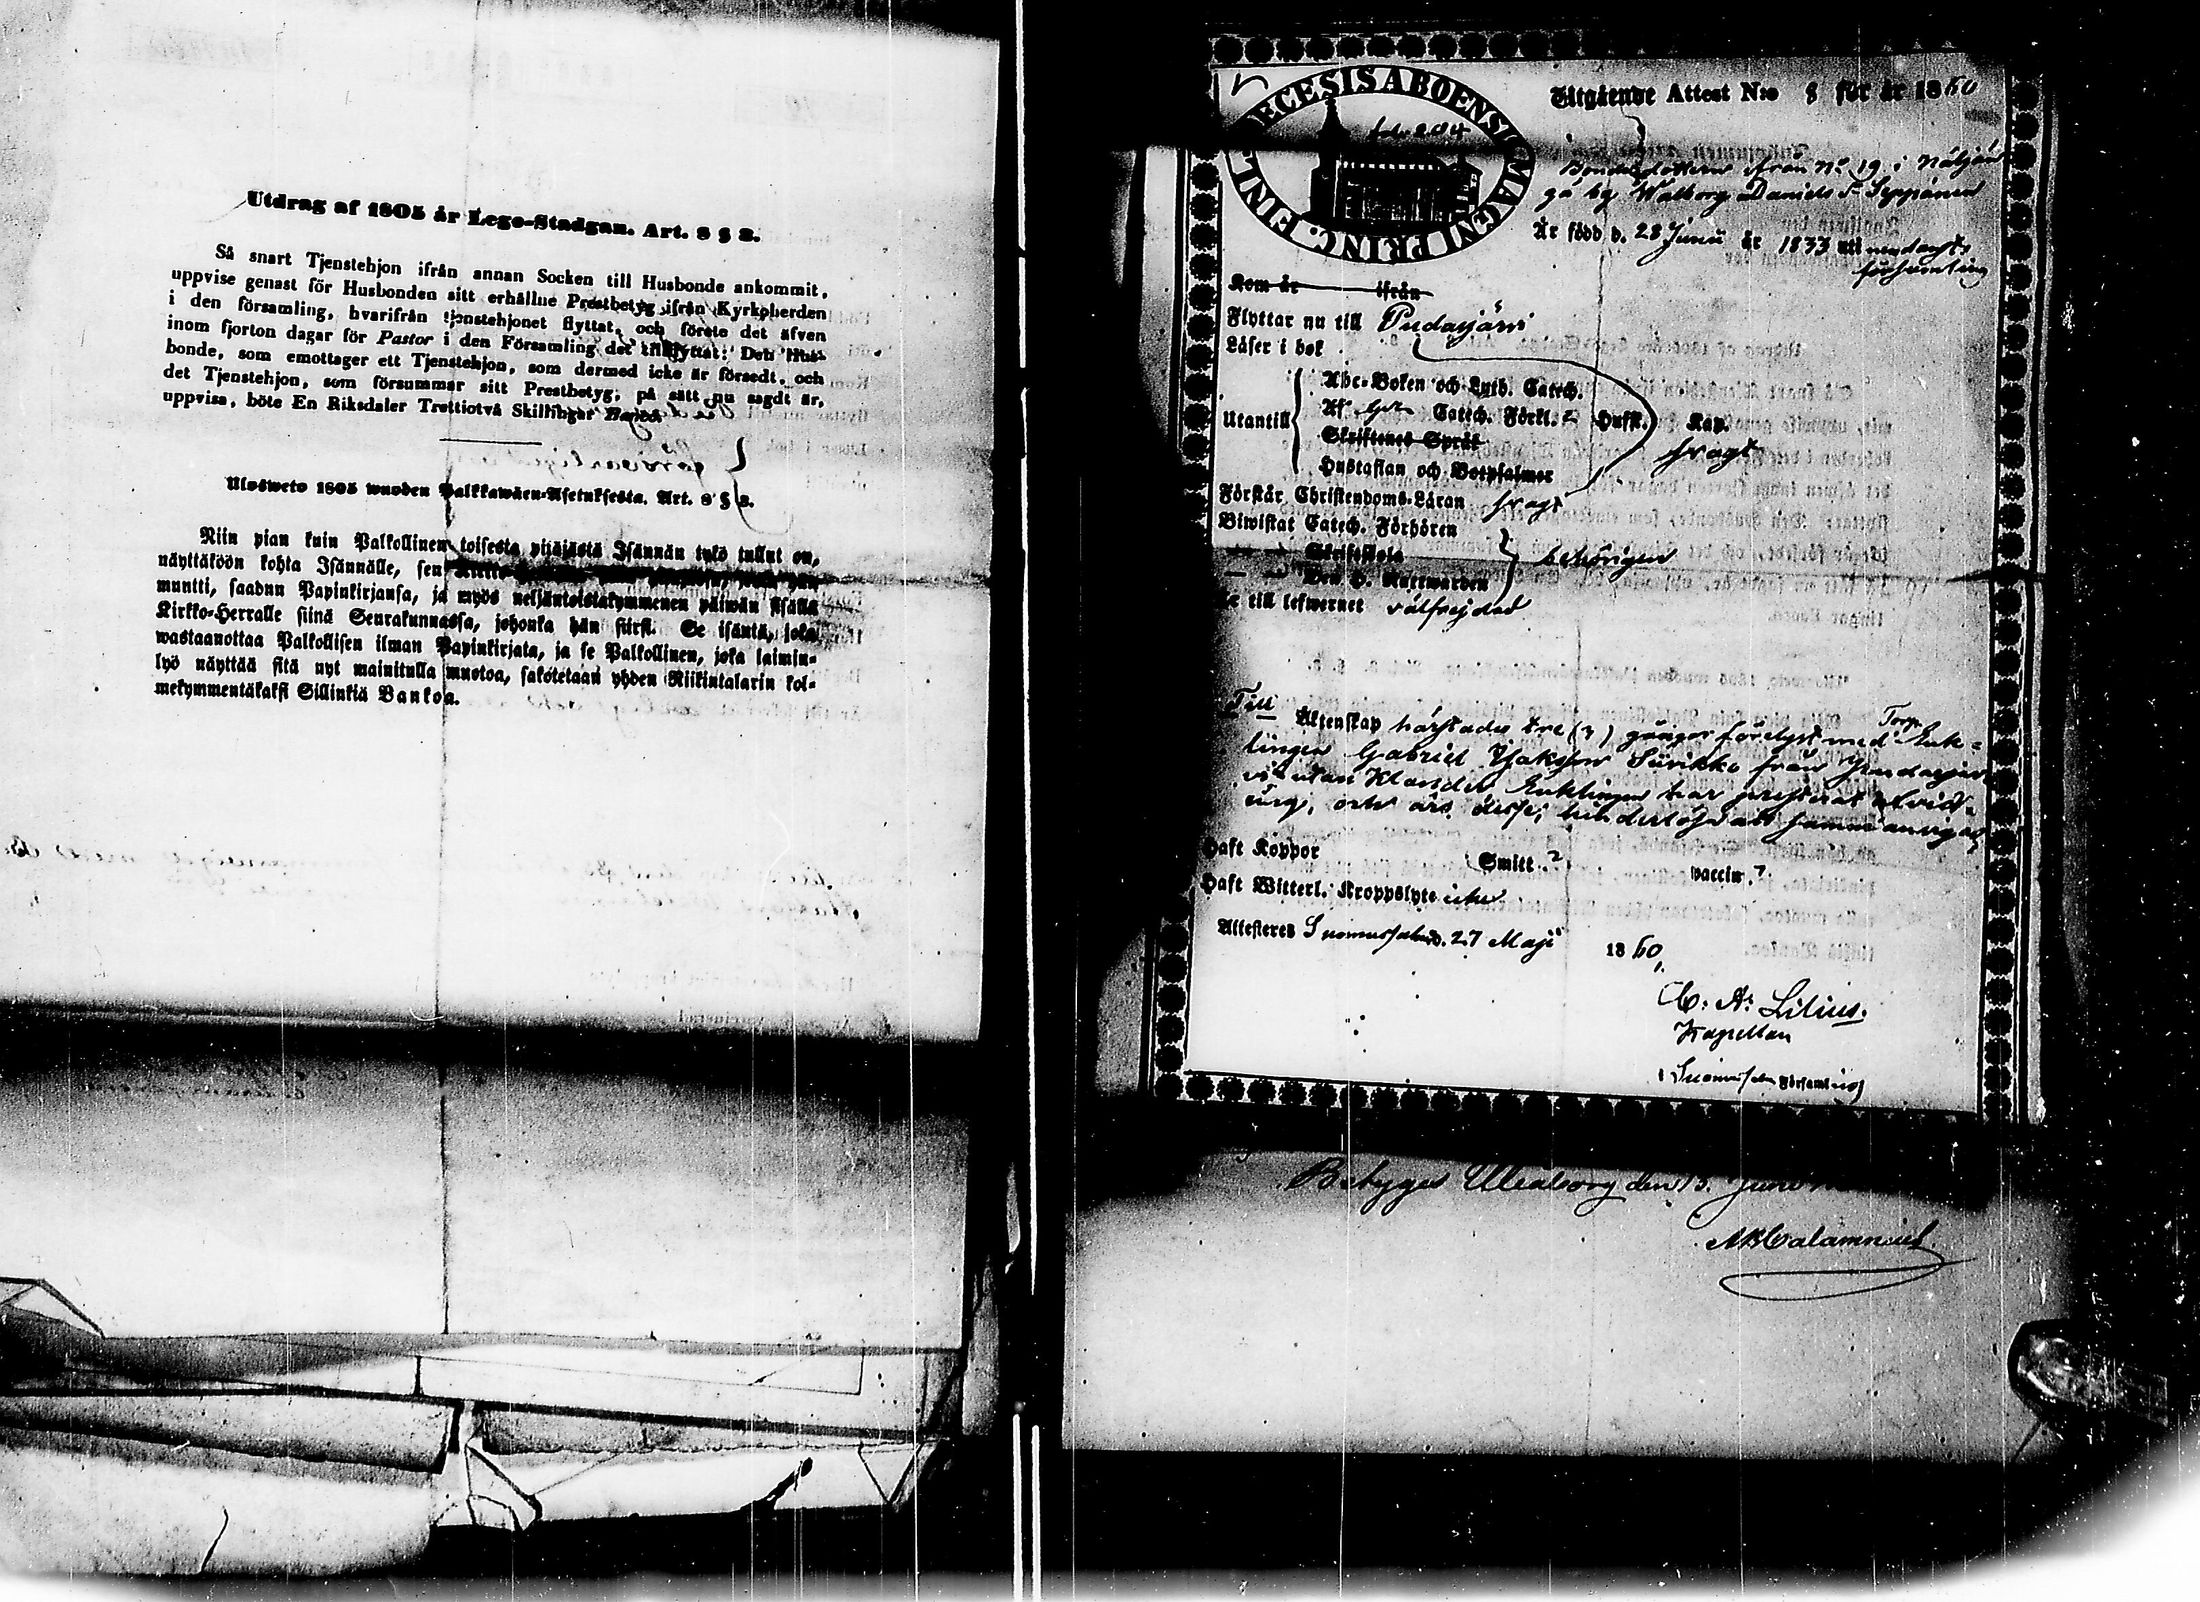 Utdrag af 1805 år Lego-Stadgan. Art. 8 § 2.
Så snart Tjenstehjon ifrån annan Socken till Husbonde ankommit,
uppvise genast för Husbonden sitt erhållne Prestbetyg ifrån Kyrkoherden
i den församling, hvarifrån tjenstehjonet flyttat, och förete det äfven
inom fjorton dagar för Pastor i den Församling det tillflyttat: Den Hus-
bonde, som emottager ett Tjenstehjon, som dermed icke är försedt, och
det Tjenstehjon, som försummar sitt Prestbetyg, på sätt nu sagdt är,
uppvisa, böte En Riksdaler Trettiotvå Skillingar Banco.
Ulosweto 1805 wuoden Palkkawäen-Asetuksesta. Art. 8 § 2.
Niin pian kuin Palkollinen toisesta pitäjästä Isännän tykö tullut on,
näyttäköön kohta Isännälle, sen
muutti, saadun Papinkirjansa, ja myös neljäntoistakymmenen päiwän sisällä
Kirkko-Herralle siinä Seurakunnassa, johonka hän siirsi. Se isäntä, joka
wastaanottaa Palkollisen ilman Papinkirjata, ja se Palkollinen, joka laimin-
lyö näyttää sitä nyt mainitulla muotoa, sakotetaan yhden Riikintalarin kol-
mekymmentäkaksi Sillinkiä Bankoa.
ECESIS ABOENSIS MAGNI PRINC. FINL
fol. 204
Utgående Attest N:o 8 för år 1860
Bondedottern ifrån No 19 i Näljän-
gä by Walborg Daniels d. Seppänen
Är född d. 28 Junii år 1833 uti nedanst:
församling
Kom år ifrån
Flyttar nu till Pudasjärvi
Läser i bok
Utantill
Abc-Boken och Luth. Catech.
Af Catech. Förkl. Hufst. Kap.
Skriftenes Språk
Hustaflan och Botpsalmer
svagt
Förstår Christendoms-Läran svagt
Biwistat Catech. Förhören
Skriftskola
Den H. Nattwarden
behörigen
till lefwernet välfrejdad
Till
Äktenskap härstädes tre (3) gånger förelyst med Torp. Enk-
lingen Gabriel Isaksson Surikko från Pudasjär-
vi utan klander. Enklingen har presterat afvid-
Haft Koppor Smitt.? vaccin.?
Haft Witterl. Kroppslyte icke
Attesteres Suomussalmi d. 27 Maji 1860.
C. A. Lilius.
Kapellan
i Suomussalmi Församling
Betyges Uleåborg den 15 Juni